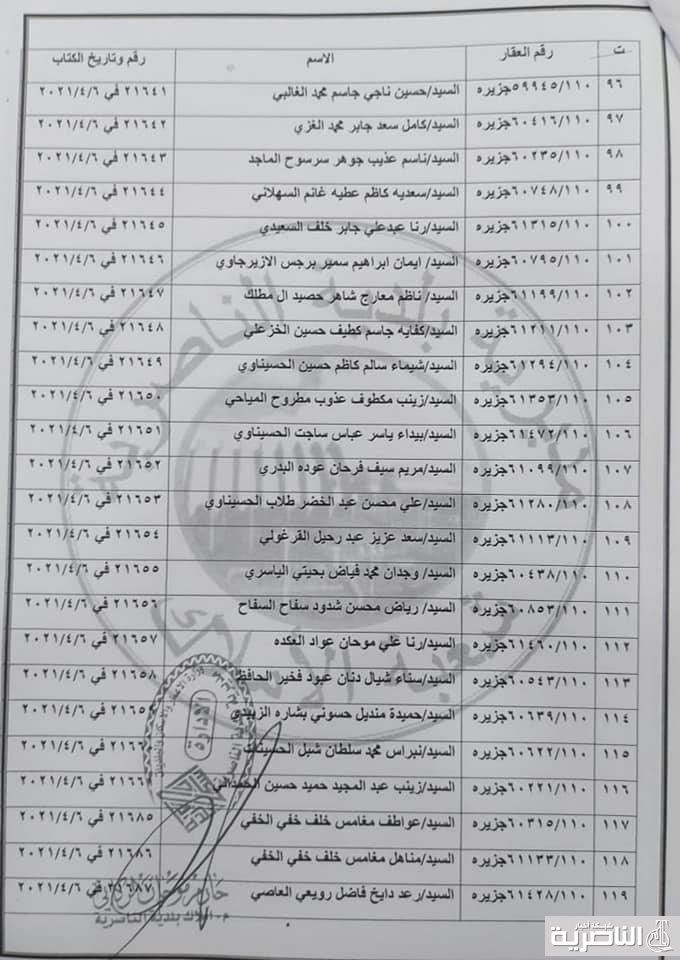 ت رقم العقار الاسم رقم وتاريخ الكتاب
٩٦ ٥٩٩٤٥/١١٠جزيره السيد/حسين ناجي جاسم محمد الغالبي ٢١٦٤١ في ٢٠٢١/٤/٦
٩٧ ٦٠٤١٦/١١٠جزيره السيد/كامل سعد جابر محمد الغزي ٢١٦٤٢ في ٢٠٢١/٤/٦
٩٨ ٦٠٢٣٥/١١٠جزيره السيد/ناسم عذيب جوهر سرسوح الماجد ٢١٦٤٣ في ٢٠٢١/٤/٦
٩٩ ٦٠٧٤٨/١١٠جزيره السيد/سعديه كاظم عطيه غانم السهلاني ٢١٦٤٤ في ٢٠٢١/٤/٦
١٠٠ ٦١٣١٥/١١٠جزيره السيد/رنا عبدعلي جابر خلف السعيدي ٢١٦٤٥ في ٢٠٢١/٤/٦
١٠١ ٦٠٧٩٥/١١٠جزيره السيد/ ايمان ابراهيم سمير برجس الازيرجاوي ٢١٦٤٦ في ٢٠٢١/٤/٦
١٠٢ ٦١١٩٩/١١٠جزيره السيد/ ناظم معارج شاهر حصيد ال مطلك ٢١٦٤٧ في ٢٠٢١/٤/٦
١٠٣ ٦١٢١١/١١٠جزيره السيد/كفايه جاسم كطيف حسين الخزعلي ٢١٦٤٨ في ٢٠٢١/٤/٦
١٠٤ ٦١٢٩٤/١١٠جزيره السيد/شيماء سالم كاظم حسين الحسيناوي ٢١٦٤٩ في ٢٠٢١/٤/٦
١٠٥ ٦١٣٥٣/١١٠جزيره السيد/زينب مكطوف عذوب مطروح المياحي ٢١٦٥٠ في ٢٠٢١/٤/٦
١٠٦ ٦١٤٧٢/١١٠جزيره السيد/بيداء ياسر عباس ساجت الحسيناوي ٢١٦٥١ في ٢٠٢١/٤/٦
١٠٧ ٦١٠٩٩/١١٠جزيره السيد/مريم سيف فرحان عوده البدري ٢١٦٥٢ في ٢٠٢١/٤/٦
١٠٨ ٦١٢٨٠/١١٠جزيره السيد/علي محسن عبد الخضر طلاب الحسيناوي ٢١٦٥٣ في ٢٠٢١/٤/٦
١٠٩ ٦١١١٣/١١٠جزيره السيد/سعد عزيز عبد رحيل القرغولي ٢١٦٥٤ في ٢٠٢١/٤/٦
١١٠ ٦٠٤٣٨/١١٠جزيره السيد/ وجدان محمد فياض بحيتي الياسري ٢١٦٥٥ في ٢٠٢١/٤/٦
١١١ ٦٠٨٥٣/١١٠جزيره السيد/ رياض محسن شدود سفاح السفاح ٢١٦٥٦ في ٢٠٢١/٤/٦
١١٢ ٦١٤٦٠/١١٠جزيره السيد/رنا علي موحان عواد العكده ٢١٦٥٧ في ٢٠٢١/٤/٦
١١٣ ٦٠٥٤٣/١١٠جزيره السيد/سناء شيال دنان عبود فخير الحافظ ٢١٦٥٨ في ٢٠٢١/٤/٦
١١٤ ٦٠٦٣٩/١١٠جزيره السيد/حميدة منديل حسوني بشاره الزبيدي في ٢٠٢١/٤/٦
١١٥ ٦٠٦٢٢/١١٠جزيره السيد/نبراس محمد سلطان شبل الحسينات في ٢٠٢١/٤/٦
١١٦ ٦٠٢٢١/١١٠جزيره السيد/زينب عبد المجيد حميد حسين الحمداني في ٢٠٢١/٤/٦
١١٧ ٦٠٣١٥/١١٠جزيره السيد/عواطف مغامس خلف خفي الخفي ٢١٦٨٥ في ٢٠٢١/٤/٦
١١٨ ٦١١٣٣/١١٠جزيره السيد/مناهل مغامس خلف خفي الخفي ٢١٦٨٦ في ٢٠٢١/٤/٦
١١٩ ٦١٤٢٨/١١٠جزيره السيد/رعد دايخ فاضل رويعي العاصي ٢١٦٨٧ في ٢٠٢١/٤/٦
مديرية بلدية الناصرية
شعبة الاملاك
الادارة
م. املاك بلدية الناصرية
شبكة اخبار
الناصرية